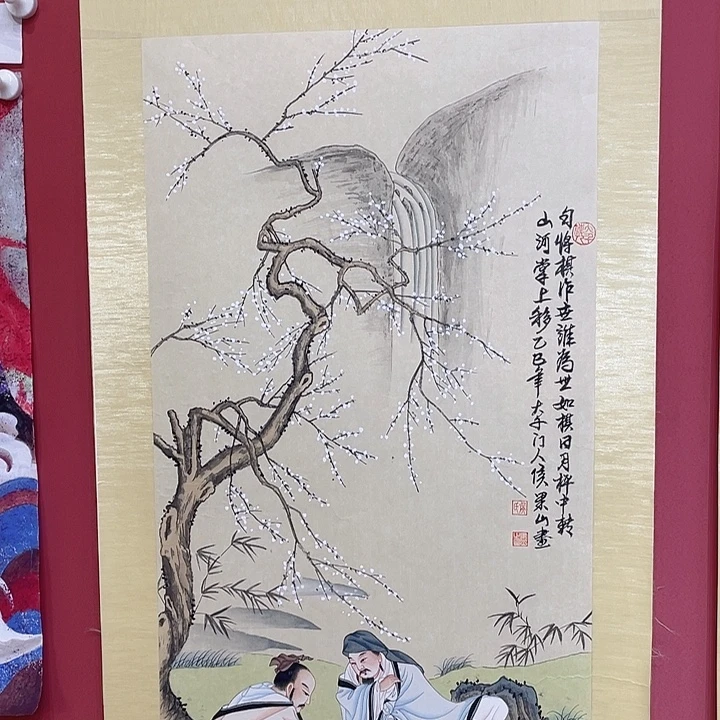 勿将棋作世誰為世如棋日月枰中转
山河掌上移乙巳年大千门人侯山画